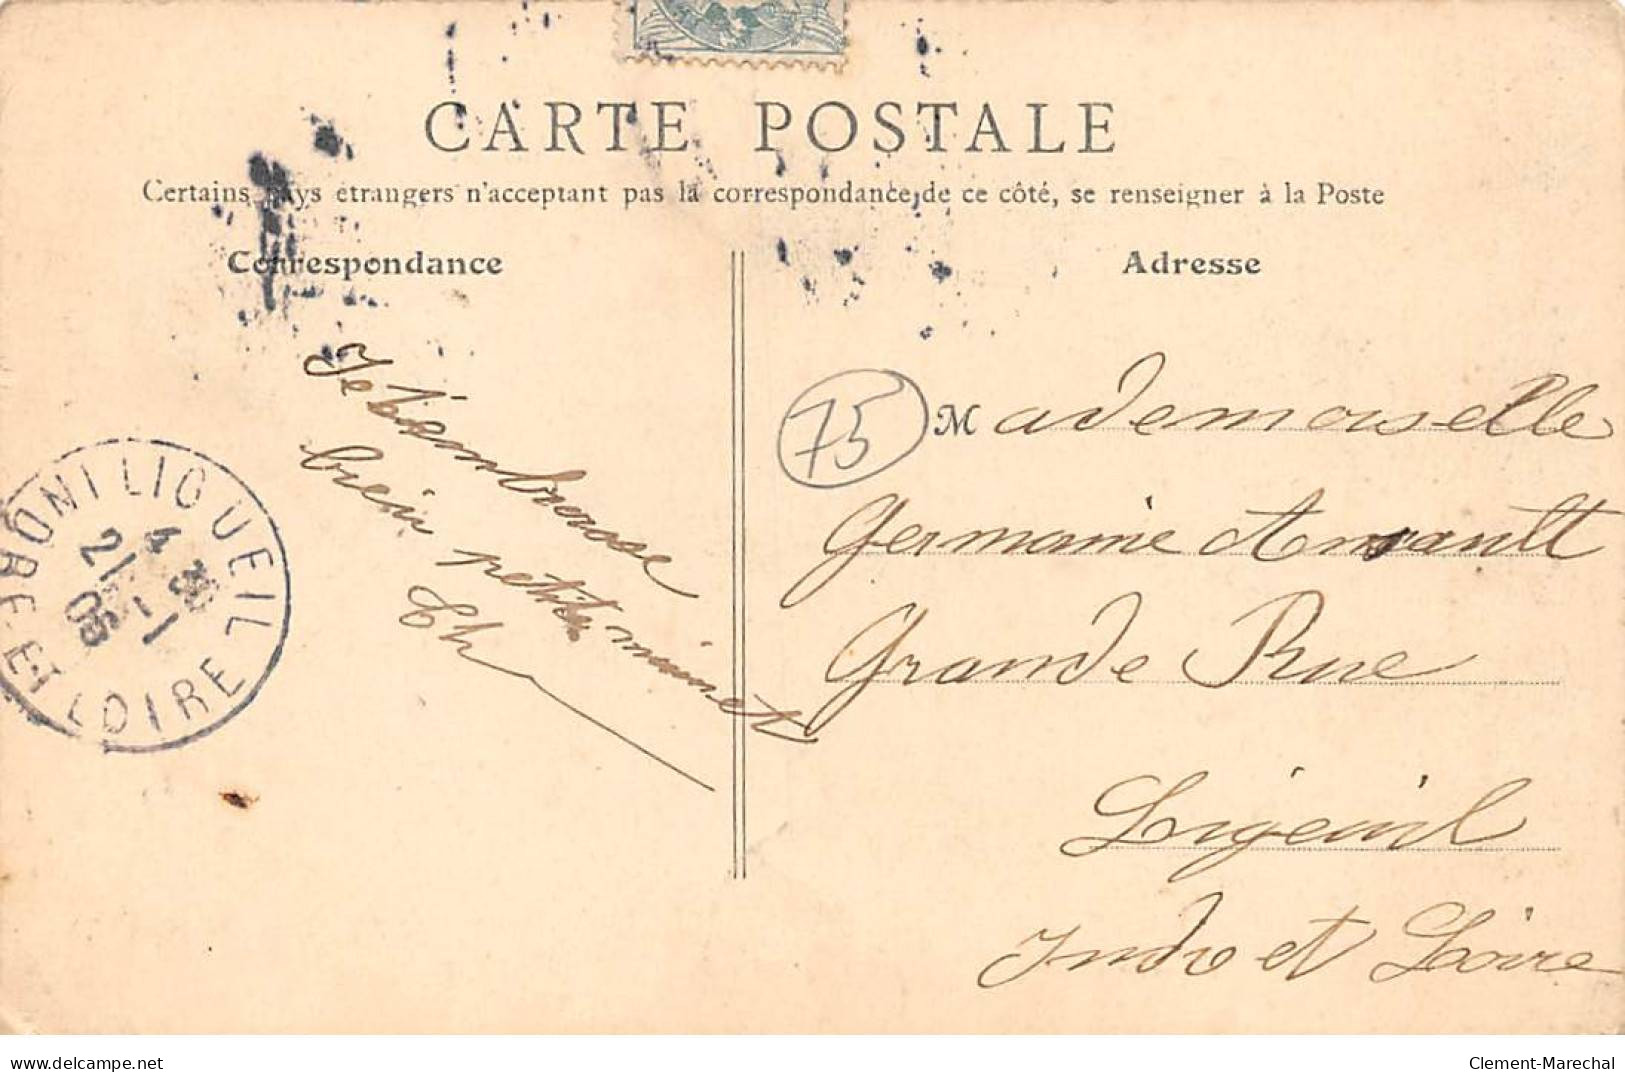 CARTE POSTALE
Certains pays étrangers n'acceptant pas la correspondance de ce côté, se renseigner à la Poste
Correspondance
Adresse
Je t'embrasse
bien petite minet
Ch
75
Mademoiselle
Germaine Arrault
Grande Rue
Ligeuil
Indre et Loire
LIGUEIL
INDRE-ET-LOIRE
delcampe.net
Clement-Marechal